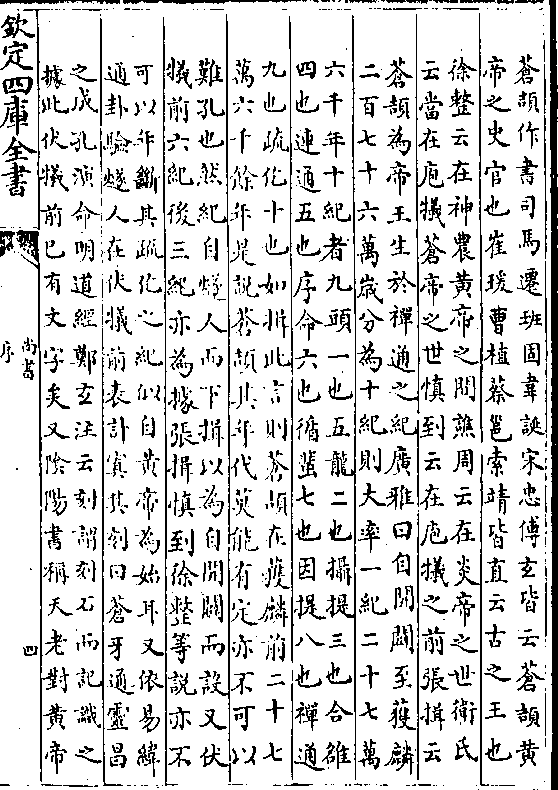 蒼頡作書司馬遷班固韋誕宋忠傅玄皆云蒼頡黄
帝之史官也崔瑗曹植蔡邕索靖皆直云古之王也
徐整云在神農黄帝之間譙周云在炎帝之世衛氏
云當在庖犧蒼帝之世慎到云在庖犧之前張揖云
蒼頡為帝王生於禪通之紀廣雅曰自開闢至獲麟
二百七十六萬歳分為十紀則大率一紀二十七萬
六千年十紀者九頭一也五龍二也攝提三也合雒
四也連通五也序命六也循蜚七也因提八也禪通
九也疏仡十也如揖此言則蒼頡在獲麟前二十七
萬六千餘年是說蒼頡其年代莫能有定亦不可以
難孔也然紀自燧人而下揖以為自開闢而設又伏
犧前六紀後三紀亦為據張揖慎到徐整等說亦不
可以年斷其疏仡之紀似自黄帝為始耳又依易緯
通卦驗燧人在伏犧前表計寘其刻曰蒼牙通靈昌
之成孔演命明道經鄭玄注云刻謂刻石而記識之
據此伏犧前已有文字矣又陰陽書稱天老對黄帝
欽定四庫全書
尚書
序
四